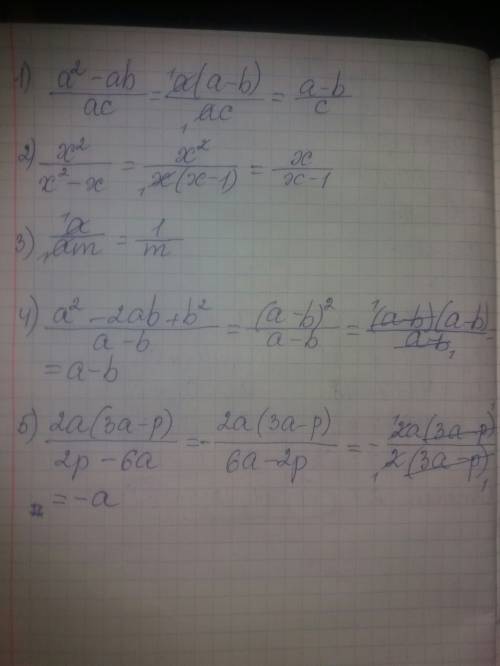 1) a² - ab / ac = a(a-b) / ac = a-b / c
2) x² / x² - x = x² / x(x-1) = x / x-1
3) a / am = 1 / m
4) a² - 2ab + b² / a-b = (a-b)² / a-b = (a-b)(a-b) / a-b
= a-b
5) 2a(3a-p) / 2p-6a = - 2a(3a-p) / 6a-2p = - 2a(3a-p) / 2(3a-p)
= -a